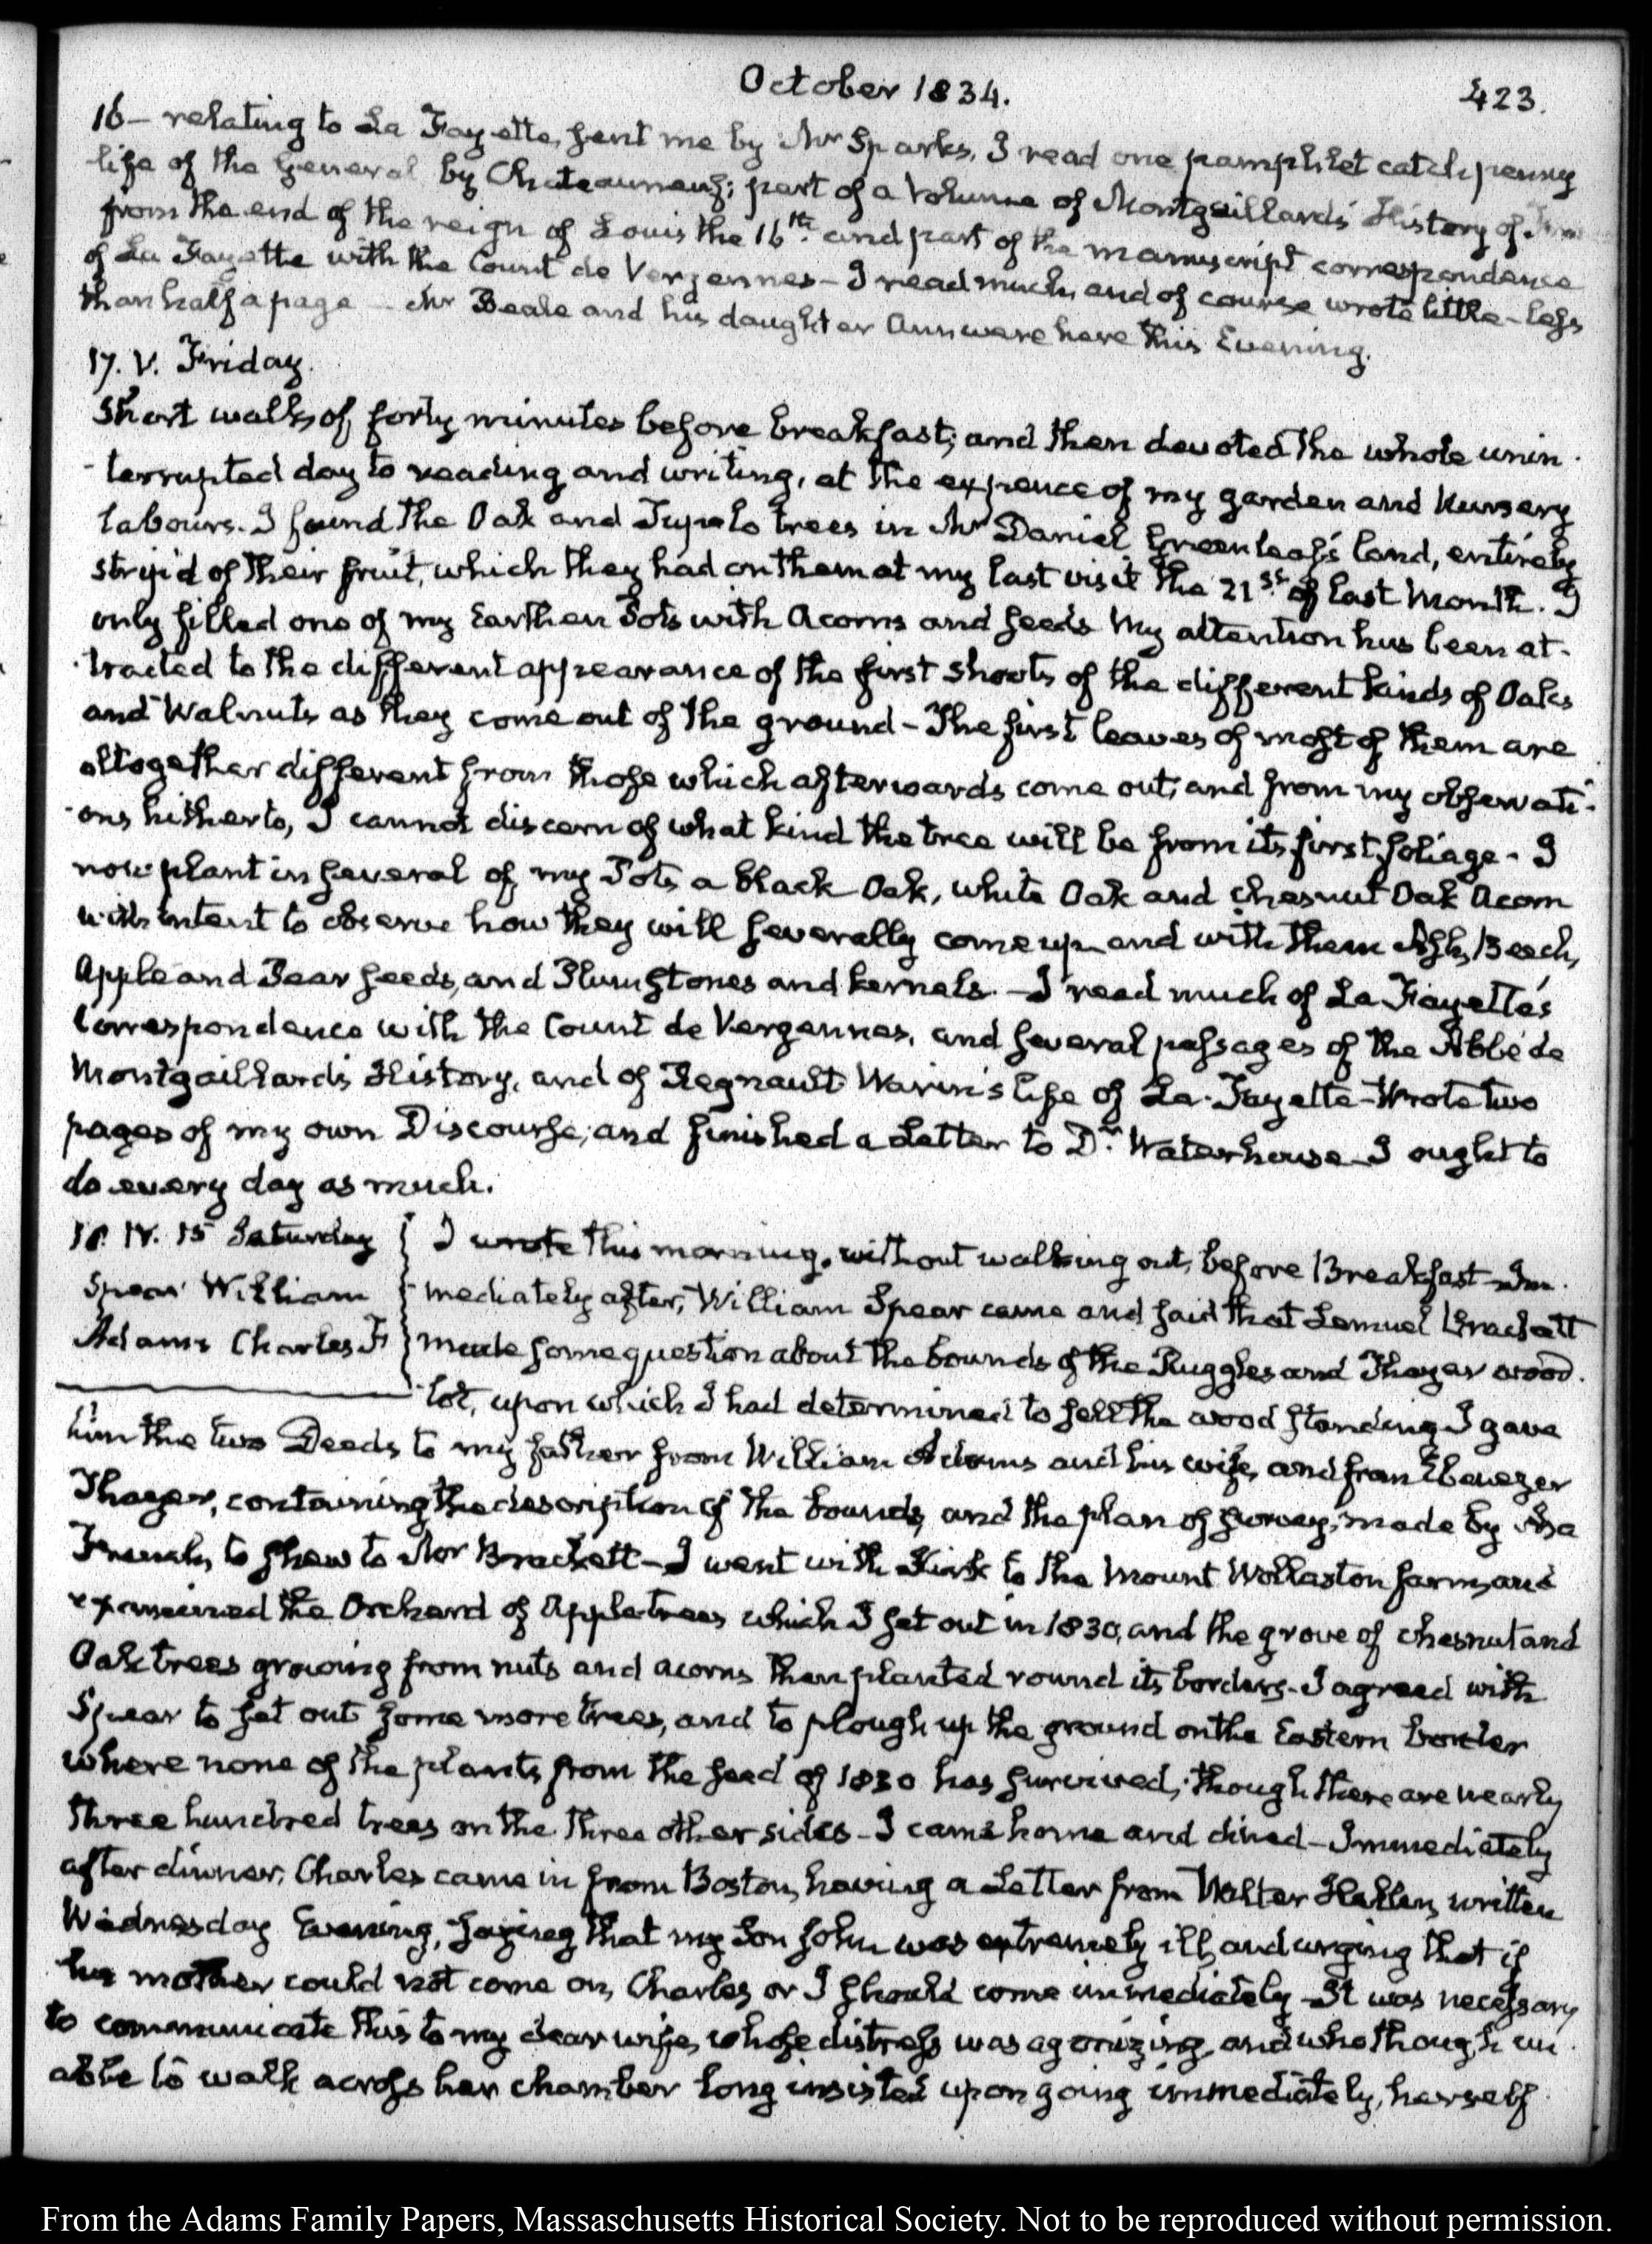 October 1834.
423.
16 — relating to La Fayette, sent me by Mr Sparks. I read one pamphlet catchpenny
life of the General by Chateauneuf; part of a Volume of Montgaillard's History of
from the end of the reign of Louis the 16th. and part of the manuscript correspondence
of La Fayette with the Count de Vergennes — I read much, and of course wrote little — less
than half a page — Mr Beale and his daughter Ann were here this Evening.
17. V. Friday.
Short walk of forty minutes before breakfast; and then devoted the whole unin-
-terrupted day to reading and writing, at the expence of my garden and Nursery
labours. I found the Oak and Tupelo trees in Mr Daniel Greenleaf's land, entirely
strip'd of their fruit, which they had on them at my last visit the 21st. of last Month. I
only filled one of my Earthen Pots with Acorns and seeds My attention has been at-
-tracted to the different appearance of the first shoots of the different kinds of Oaks
and Walnuts as they come out of the ground — The first leaves of most of them are
altogether different from those which afterwards come out; and from my observati-
-ons hitherto, I cannot discern of what kind the tree will be from its first foliage — I
now plant in several of my Pots, a black Oak, white Oak and chesnut Oak Acorn
with intent to observe how they will severally come up and with them Ash, Beech,
Apple and Pear seeds, and Plum stones and kernels. — I read much of La Fayette's
Correspondence with the Count de Vergennes, and several passages of the Abbé de
Montgaillard's History, and of Regnault Warin's life of La Fayette — Wrote two
pages of my own Discourse; and finished a Letter to Dr. Waterhouse — I ought to
do every day as much.
18. IV. 15 Saturday
Spear William
Adams Charles F
I wrote this morning, without walking out, before Breakfast — Im-
mediately after, William Spear came and said that Lemuel Brackett
made some question about the bounds of the Ruggles and Thayer wood-
-lot, upon which I had determined to sell the wood standing I gave
him the two Deeds to my father from William Adams and his wife, and from Ebenezer
Thayer, containing the description of the bounds, and the plan of survey, made by Asa
French, to shew to Mr Brackett — I went with Kirk to the Mount Wollaston farm, and
examined the Orchard of Appletrees which I set out in 1830, and the grove of chesnut and
Oak trees growing from nuts and acorns then planted round its borders — I agreed with
Spear to set out some more trees, and to plough up the ground on the Eastern border
where none of the plants from the seed of 1830 has survived; though there are nearly
three hundred trees on the three other sides — I came home and dined — Immediately
after dinner, Charles came in from Boston, having a Letter from Walter Hellen, written
Wednesday Evening, saying that my Son John was extremely ill, and urging that if
his mother could not come on, Charles or I should come immediately — It was necessary
to communicate this to my dear wife, whose distress was agonizing, and who though un-
able to walk across her chamber long insisted upon going immediately, herself
From the Adams Family Papers, Massaschusetts Historical Society. Not to be reproduced without permission.